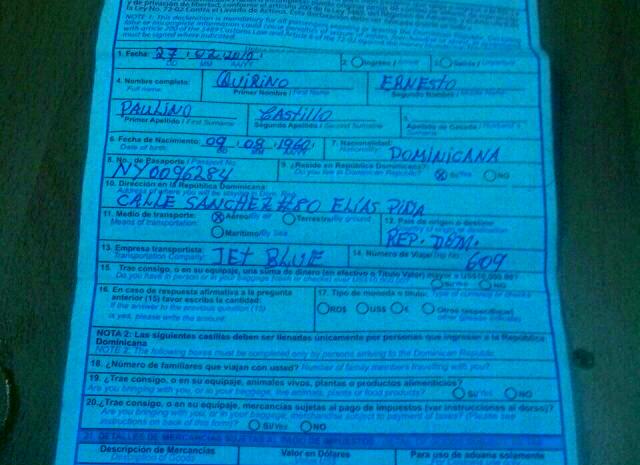 la Ley No. 72-02 Contra el Lavado de Activos.
NOTE 1: This declaration is mandatory for all
1. Fecha: 27 / 02 /
DD MM AA/YY
2. Ingreso / 3. Salida /
4. Nombre completo: QUIRINO ERNESTO
Full name: Primer Nombre / First Name Segundo Nombre /
PAULINO CASTILLO 5.
Primer Apellido / First Surname Segundo Apellido / Second Surname Apellido de Casada /
6. Fecha de Nacimiento: 09 / 08 / 1960 7. Nacionalidad:
Date of birth: DD MM Nationality: DOMINICANA
8. No. de Pasaporte / Passport No. 9. ¿Reside en República Dominicana?
NY0096284 Do you live in Dominican Republic? Sí/Yes NO
10. Dirección en la República Dominicana
Address of where you will be staying in Dom. Rep.
CALLE SANCHEZ #80 ELIAS PIÑA
11. Medio de transporte: Aéreo/By air Terrestre/By ground 12. País de origen o destino
Means of transportation: Marítimo/By Sea REP. DOM.
13. Empresa transportista: JET BLUE 14. Número de Viaje/Trip No. 609
Transportation Company:
15. Trae consigo, o en su equipaje, una suma de dinero (en efectivo o Título Valor) mayor a US$10,000.00?
Do you have in person or in your baggage (cash or checks) over US$10,000.00? Sí/Yes NO
16. En caso de respuesta afirmativa a la pregunta 17. Tipo de moneda o título: Type of currency or checks
anterior (15) favor escriba la cantidad: RD$ US$ € Otros (especifique)
If the answer to the previous question (15) other (please indicate)
is yes, please write the amount:
NOTA 2: Las siguientes casillas deben ser llenadas únicamente por personas que ingresan a la República
Dominicana
NOTE 2: The following boxes must be completed only by persons arriving to the Dominican Republic
18. ¿Número de familiares que viajan con usted? Number of family members travelling with you?
19. ¿Trae consigo, o en su equipaje, animales vivos, plantas o productos alimenticios?
Are you bringing with you, or in your baggage, live animals, plants or food products? Sí/Yes NO
20. ¿Trae consigo, o en su equipaje, mercancías sujetas al pago de impuestos (ver instrucciones al dorso)?
Are you bringing with you, or in your baggage, merchandise subject to payment of taxes? (Please see
instructions on back of this form)? Sí/Yes NO
21. DETALLES DE MERCANCIAS SUJETAS AL PAGO DE IMPUESTOS
Descripción de Mercancías Valor en Dólares Para uso de aduana solamente
Description of Goods